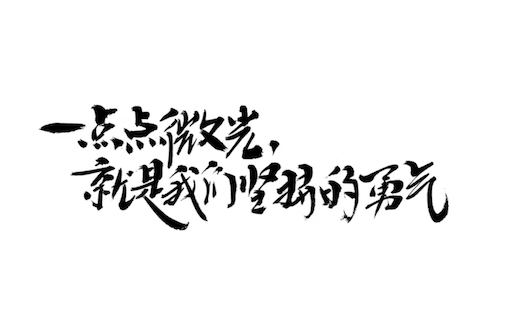 一点点微光，
就是我们坚强的勇气